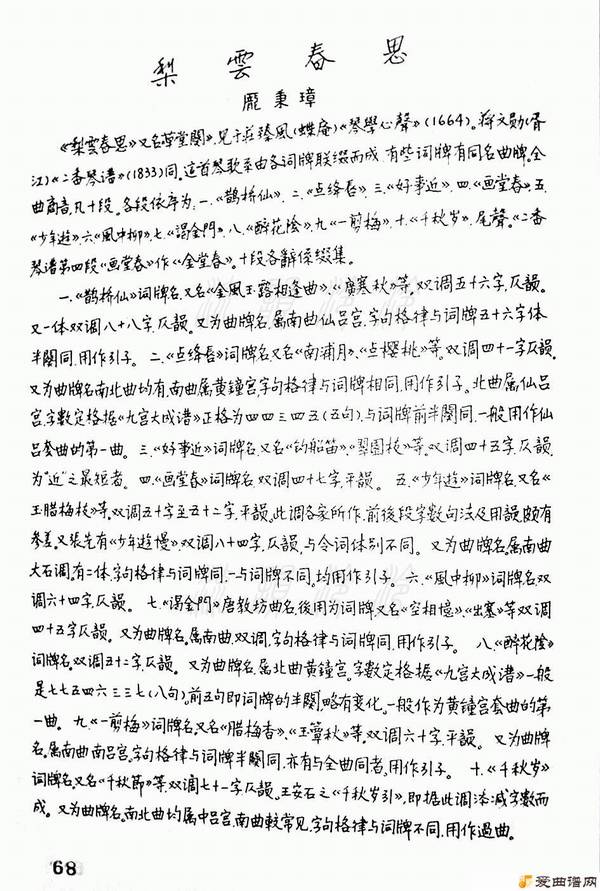 梨雲春思
龎秉璋
《梨雲春思》又名《草堂闋》,見于莊臻鳳(蝶庵)《琴學心聲》(1664)。蔣文勛(胥
江)《二香琴谱》(1833)同。這首琴歌系由各词牌联缀而成,有些词牌有同名曲牌。全
曲商音,凡十段。各段依序为:一.《鹊桥仙》,二.《点绛唇》,三.《好事近》,四.《画堂春》,五.
《少年遊》,六.《風中柳》,七.《謁金門》,八.《醉花陰》,九.《一剪梅》,十.《千秋岁》,尾聲。《二香
琴谱》第四段《画堂春》作《金堂春》。十段各辭係缀集。
一.《鹊桥仙》词牌名,又名《金風玉露相逢曲》、《廣寒秋》等。双调五十六字,仄韻。
又一体双调八十八字,仄韻。又为曲牌名,属南曲仙吕宫,字句格律与词牌五十六字体
半闋同,用作引子。 二.《点绛唇》词牌名,又名《南浦月》、《点樱桃》等。双调四十一字,仄韻。
又为曲牌名,南北曲均有,南曲属黄鐘宫,字句格律与词牌相同,用作引子。北曲属仙吕
宫,字數定格據《九宫大成谱》正格为四四三四五(五句),与词牌前半闋同,一般用作仙
吕套曲的第一曲。 三.《好事近》词牌名,又名《钓船笛》、《翠園枝》等。双调四十五字,仄韻,
为“近”之最短者。 四.《画堂春》词牌名,双调四十七字,平韻。 五.《少年遊》词牌名,又名《
玉腊梅枝》等,双调五十字至五十二字,平韻。此调各家所作,前後段字數句法及用韻,頗有
参差。又張先有《少年遊慢》,双调八十四字,仄韻,与令词体别不同。 又为曲牌名,属南曲
大石调,有二体,字句格律与词牌同,一与词牌不同,均用作引子。 六.《風中柳》词牌名,双
调六十四字,仄韻。 七.《謁金門》唐教坊曲名,後用为词牌,又名《空相憶》、《出塞》等,双调
四十五字,仄韻。 又为曲牌名,属南曲,双调,字句格律与词牌同,用作引子。 八.《醉花陰》
词牌名,双调五十二字,仄韻。 又为曲牌名,属北曲黄鐘宫,字數定格據《九宫大成谱》一般
是七七五四六三三七(八句),前五句即词牌的半闋,略有变化。一般作为黄鐘宫套曲的第
一曲。 九.《一剪梅》词牌名,又名《腊梅香》、《玉簟秋》等,双调六十字,平韻。 又为曲牌
名,属南曲南吕宫,字句格律与词牌半闋同,亦有与全曲同者,用作引子。 十.《千秋岁》
词牌名,又名《千秋節》等,双调七十一字,仄韻。王安石之《千秋岁引》,即據此调添减字數而
成。 又为曲牌名,南北曲均属中吕宫,南曲較常見,字句格律与词牌不同,用作過曲。
68
爱曲谱网